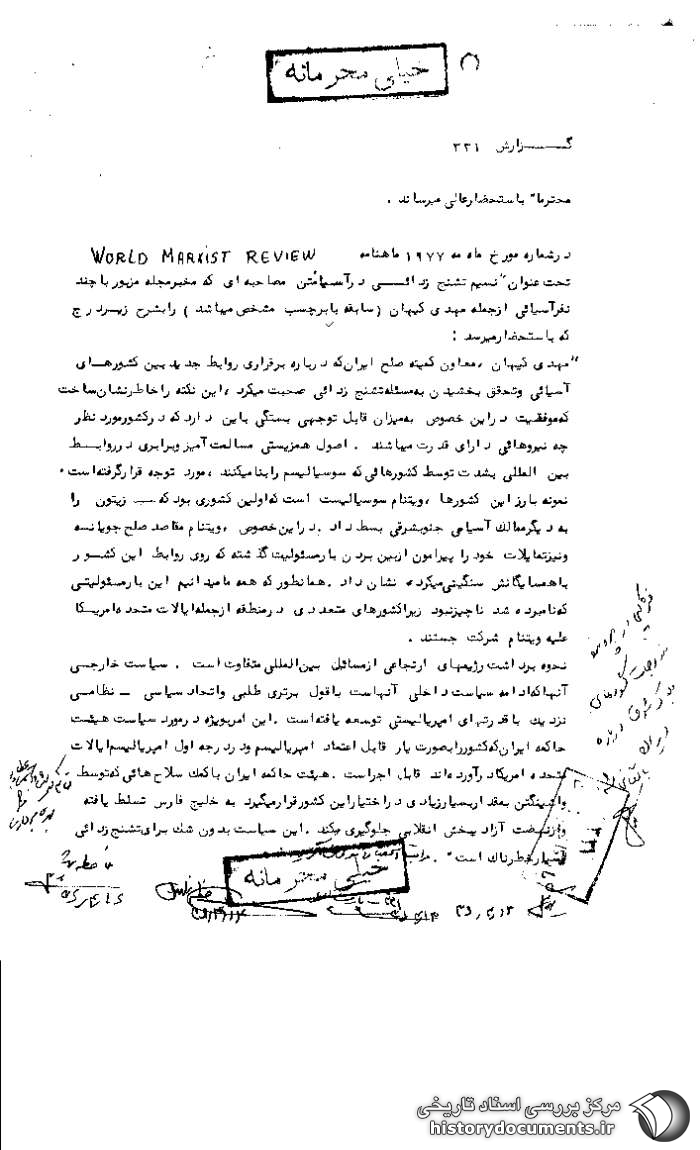 خیلی محرمانه
گـــــزارش ۳۳۱
محترما" باستحضارعالی میرساند .
درشماره مورخ ماه مه ۱۹۷۷ ماهنامه WORLD MARXIST REVIEW
تحت عنوان "نسیم تشنج زدائــــی درآسیا"متن مصاحبه ای که مخبرمجله مزبور باچند
نفرآسیائی ازجمله مهدی کیهان (سابقه بابرچسب مشخص میباشد ) رابشرح زیـردرج
که باستحضارمیرسد :
"مهدی کیهان ،معاون کمیته صلح ایران که درباره برقراری روابط جدیدبین کشورهـای
آسیائی وتحقق بخشیدن به مسئله تشنج زدائی صحبت میکرد ،این نکته راخاطرنشان ساخت
که موفقیت دراین خصوص به میزان قابل توجهی بستگی باین داردکه درکشورمورد نظر
چه نیروهائی دارای قدرت میباشند . اصول همزیستی مسالمت آمیز وبرابری درروابـط
بین المللی بشدت توسط کشورهائی که سوسیالیسم رابنامیکنند ،مورد توجه قرارگرفته است .
نمونه بارزاین کشورها ،ویتنام سوسیالیست است که اولین کشوری بود که زیتون را
به دیگرممالک آسیای جنوبشرقی بسط داد .دراین خصوص ،ویتنام مقاصد صلح جویانـه
ونیزتمایلات خود را پیرامون ازبین بردن بارمسئولیت گذشته که روی روابط این کشـور
باهمسایگانش سنگینی میکرده نشان داد .همانطورکه همه مامیدانیم این بارمسئولیتی
که نامبرده شد ناچیزنبود زیراکشورهای متعددی درمنطقه ازجمله ایالات متحده امریکـا
علیه ویتنام شرکت جستند .
نحوه برداشت رژیمهای ارتجاعی ازمسائل بین المللی متفاوت است . سیاست خارجـی
آنهاکه ادامه سیاست داخلی آنهاست باقول برتری طلبی واتحاد سیاسی ـ نظامـی
نزدیک باقدرتهای امپریالیستی توسعه یافته است .این امربویژه درمورد سیاست هیئت
حاکمه ایران که کشوررابصورت یار قابل اعتماد امپریالیسم ودردرجه اول امپریالیسم ایالات
متحده امریکادرآورده اند قابل اجراست .هیئت حاکمه ایران باکمک سلاح هائی که توسط
واشینگتن به مقداربسیارزیادی دراختیاراین کشورقرارمیگیرد به خلیج فارس تسلط یافته
وازنهضت آزادیبخش انقلابی جلوگیری میکند .این سیاست بدون شک برای تشنج زدائی
بسیارخطرناک است" .
خیلی محرمانه
مرکز بررسی اسناد تاریخی
historydocuments.ir